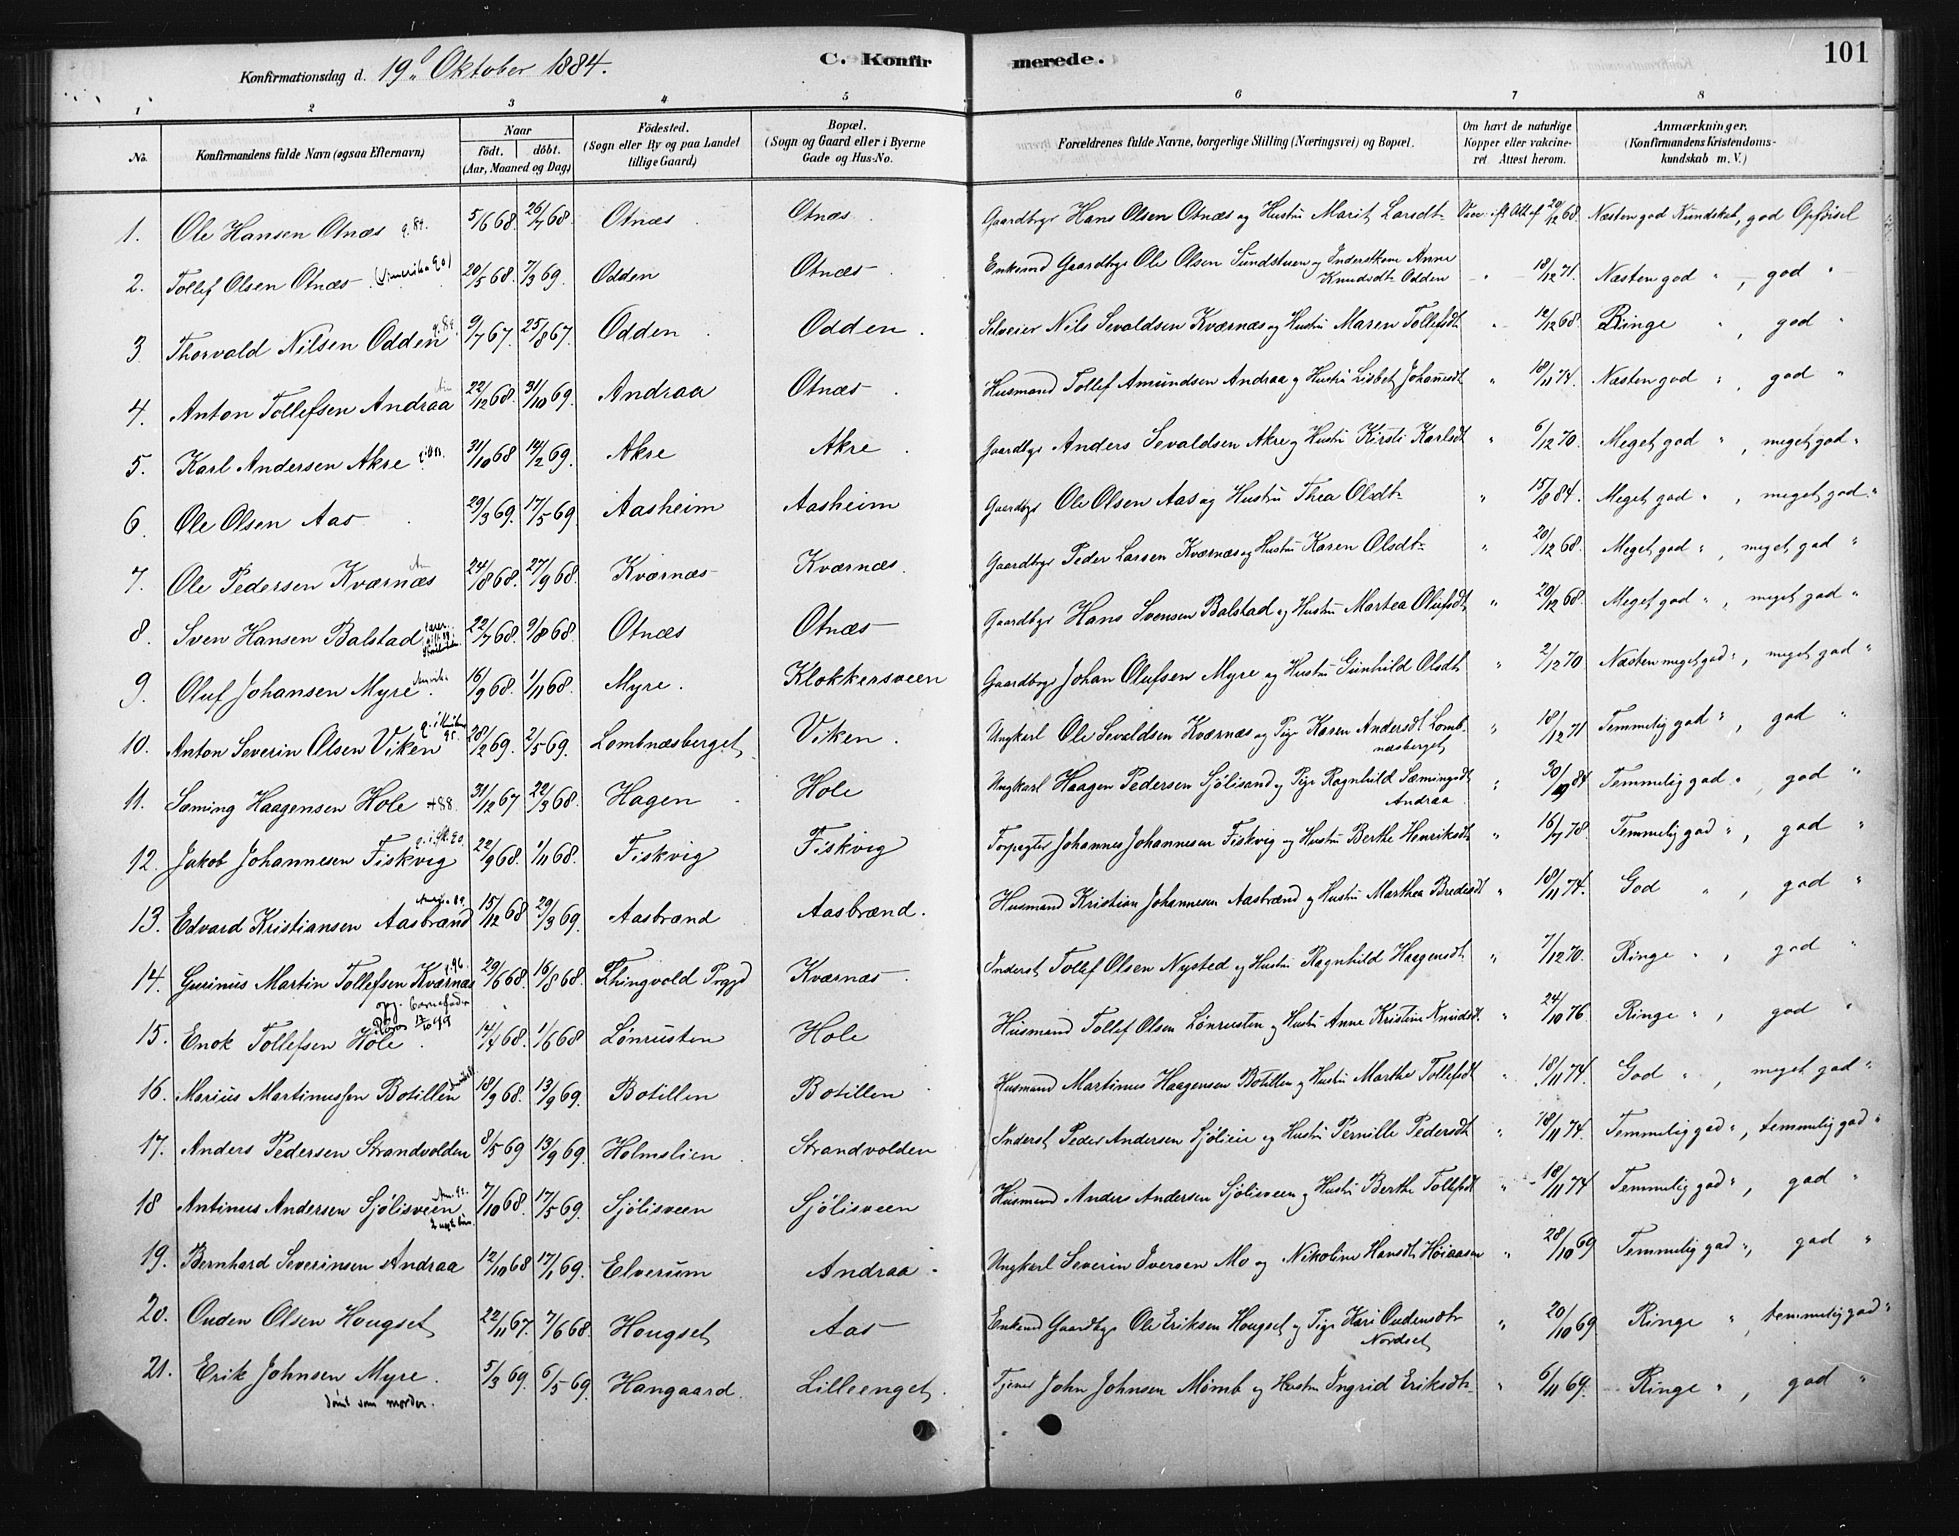 Konfirmationsdag d. 19d Oktober 1884. C. Konfirmerede. 101
1 2 3 4 5 6 7 8
No. Konfirmandens fulde Navn (ogsaa Efternavn) Naar födt. döbt. (Aar, Maaned og Dag) Födested. (Sogn eller By og paa Landet tillige Gaard) Bopæl. (Sogn og Gaard eller i Byerne Gade og Hus-No. Forældrenes fulde Navne, borgerlige Stilling (Næringsvei) og Bopæl. Om havt de naturlige Kopper eller vakcineret Attest herom. Anmærkninger. (Konfirmandens Kristendomskundskab m. V.)
1. Ole Hansen Otnæs g. 89. 5/6 68. 26/7 68. Otnæs Otnæs Gaardbgr Hans Olsen Otnæs og Hustru Marit Larsdt 20/12 68. Næsten god Kundskab, god Opförsel
2. Tollef Olsen Otnæs (Amerika 90) 20/5 68. 7/3 69. Odden Otnæs Enkemd Gaardbgr Ole Olsen Sundstuen og Inderstkone Anne Knudsdt Odden " 18/12 71. Næsten god " , god "
3. Thorvald Nilsen Odden 9/7 67. 25/8 67. Odden Odden Selveier Nils Sevaldsen Kværnæs og Hustru Maren Tollefsdt " 12/12 68. Ringe " , god "
4. Anton Tollefsen Andraa 22/12 68. 31/10 69. Andraa Otnæs Husmand Tollef Amundsen Andraa og Hustru Lisbet Johansdt " 18/11 74. Næsten god " , god "
5. Karl Andersen Akre 31/10 68 14/2 69. Akre Akre Gaardbgr Anders Sevaldsen Akre og Hustru Kirsti Karlsdt " 6/12 70. Meget god " , meget god "
6. Ole Olsen Aas 29/3 69. 17/5 69. Aasheim Aasheim Gaardbgr Ole Olsen Aas og Hustru Thea Olsdt " 15/8 84. Meget god " , meget god "
7. Ole Pedersen Kværnæs Am 24/8 68. 27/9 68. Kværnæs Kværnæs Gaardbgr Peder Larsen Kværnæs og Hustru Karen Olsdt " 20/12 68. Meget god " , meget god "
8. Sven Hansen Balstad 22/7 68. 9/8 68. Otnæs Otnæs Gaardbgr Hans Svensen Balstad og Hustru Martea Olufsdt " 20/12 68. Meget god " , meget god "
9. Oluf Johansen Myre Amerika 16/9 68. 1/11 68. Myre. Klokkersveen Gaardbgr Johan Olufsen Myre og Hustru Gunhild Olsdt " 2/12 70 Næsten meget god " , meget god "
10. Anton Severin Olsen Viken 95. 28/2 69. 2/5 69. Lombnæsberget Viken. Ungkarl Ole Sevaldsen Kværnæs og Pige Karen Andersdt Lombnæsberget " 18/12 71 Temmelig god " , god "
11. Sæming Haagensen Hole +88. 31/12 67 22/3 68. Hagen Hole Ungkarl Haagen Pedersen Sjölisand og Pige Ragnhild Sæmingsdt Andraa " 84 Temmelig god " , god "
12. Jakob Johannesen Fiskvig 90. 22/9 68. 1/11 68. Fiskvig Fiskvig Forpagter Johannes Johannesen Fiskvig og Hustru Berthe Henriksdt " 16/7 78. Temmelig god " , god "
13. Edvard Kristiansen Aasbrænd 89. 15/12 68 29/3 69. Aasbrænd Aasbrænd. Husmand Kristian Johannesen Aasbrænd og Hustru Marthea Bredesdt " 18/11 74. God " , god "
14. Gurinus Martin Tollefsen Kværnæs g. 96. 29/6 68. 16/8 68. Thingvold Prgjd Kværnæs Inderst Tollef Olsen Nysted og Hustru Ragnhild Haagensdt " 7/12 70. Ringe " , god "
15. Enok Tollefsen Hole. opg. Barnefader 14/4 68. 1/6 68 Lønrusten Hole Husmand Tollef Olsen Lønrusten og Hustru Anne Kristine Knudsdt. " 24/10 76. Ringe " , god "
16. Marius Martinussen Botillen 18/9 68. 13/9 69. Botillen Botillen Husmand Martinus Haagensen Botillen og Hustru Marthe Tollefsdt " 18/11 74. God " , meget god "
17. Anders Pedersen Strandvolden 8/5 69 13/9 69. Holmslien Strandvolden Inderst Peder Andersen Sjölieie og Hustru Pernille Pedersdt " 18/11 74. Temmelig god " , temmelig god "
18 Antinus Andersen Sjölisveen 7/10 68. 17/5 69. Sjölisveen Sjölisveen Husmand Anders Andersen Sjölisveen og Hustru Berthe Tollefsdt " 18/11 74 Temmelig god " , god "
19. Bernhard Severinsen Andraa 12/10 68 17/1 69. Elverum Andraa Ungkarl Severin Iversen Mo og Nikoline Hansdt Höiaasen " 28/10 69 Temmelig god " , god "
20. Ouden Olsen Hougset 22/11 67. 7/6 68. Hougset Aas Enkemd Gaardbgr Ole Eriksen Hougset og Pige Kari Oudensdtr Nordset " 20/10 69 Ringe " , temmelig god "
21. Erik Johnsen Myre. 5/3 69. 6/5 69. Hangaard. Lilleenget. Tjener John Johnsen Mömb og Hustru Ingrid Eriksdt " 6/11 69. Ringe " , god "
dömt som morder.